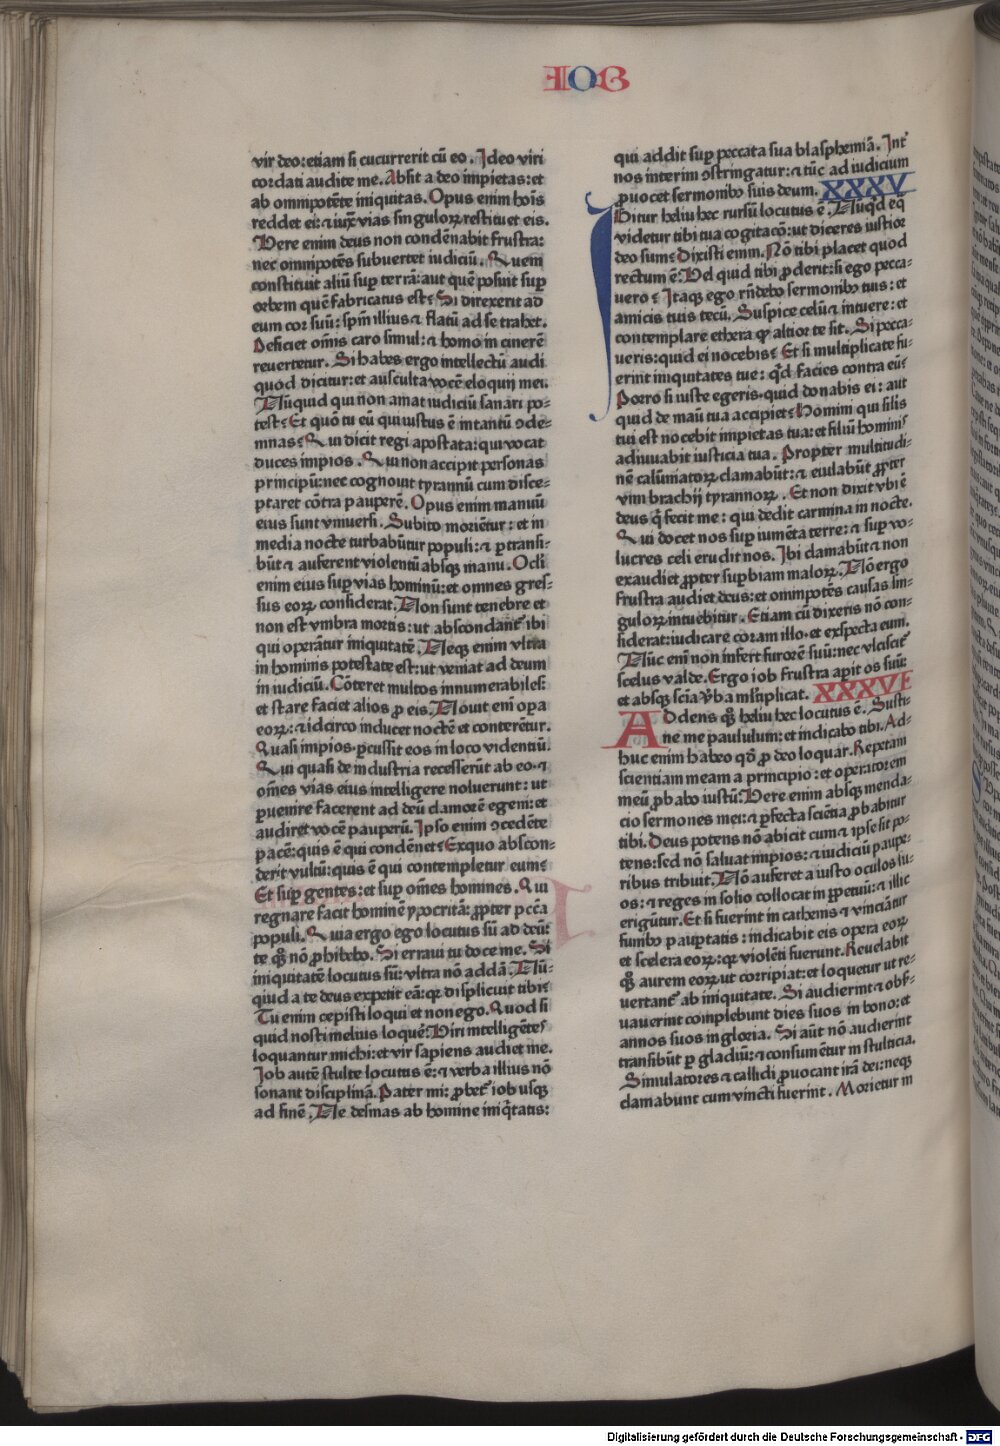 IOB
vir deo: etiam si cucurrerit cū eo. Ideo viri
cordati audite me. Absit a deo impietas: et
ab omnipotēte iniquitas. Opus enim hoīs
reddet ei: ⁊ iuxͣ vias singuloꝝ restituet eis.
Vere enim deus non condēnabit frustra:
nec omnipotēs subuertet iudiciū. Quem
constituit aliū suꝑ terrā: aut quē posuit suꝑ
orbem quē fabricatus est? Si direxerit ad
eum cor suū: spm̄ illius ⁊ flatū ad se trahet.
Deficiet om̄is caro simul: ⁊ homo in cinerē
reuertetur. Si habes ergo intellectū audi
quod dicitur: et ausculta vocē eloquij mei.
Nūquid qui non amat iudiciū sanari po-
test? Et quō tu eū qui iustus ē in tantū ↄde-
mnas? Qui dicit regi apostata: qui vocat
duces impios. Qui non accipit personas
principū: nec cognouit tyrannū cum disce-
ptaret cōtra pauperē. Opus enim manuū
eius sunt vniuersi. Subito moriētur: et in
media nocte turbabūtur populi: ⁊ ꝑtransi-
būt ⁊ auferent violentū absqꝫ manu. Oculi
enim eius suꝑ vias hominū: et omnes gres-
sus eoꝝ considerat. Non sunt tenebre et
non est vmbra mortis: ut abscondant᷑ ibi
qui operātur iniquitatē. Neqꝫ enim vltra
in hominis potestate est: ut veniat ad deum
in iudiciū. Cōteret multos innumerabiles:
et stare faciet alios ꝓ eis. Nouit enī opa
eoꝝ: ⁊ idcirco inducet noctē et conterētur.
Quasi impios ꝑcussit eos in loco videntiū.
Qui quasi de industria recesserūt ab eo ⁊
om̄es vias eius intelligere noluerunt: ut
ꝑuenire facerent ad deū clamorē egeni: et
audiret vocē pauperū. Ipso enim ↄcedēte
pacē: quis ē qui condēnet? Ex quo abscon-
derit vultū: quis ē qui contempletur eum?
Et suꝑ gentes: et suꝑ om̄es homines. Qui
regnare facit hominē ypocritā: ꝓpter pccā
populi. Quia ergo ego locutus sū ad deū:
te qꝫ nō ꝓhibebo. Si erraui tu doce me. Si
iniquitatē locutus sū: vltra nō addā. Nū-
quid a te deus expetit eā: qꝛ displicuit tibi?
Tu enim cepisti loqui et non ego. Quod si
quid nosti melius loquē: Viri intelligētes
loquantur michi: et vir sapiens audiet me.
Iob autē stulte locutus ē: ⁊ verba illius nō
sonant disciplinā. Pater mi: ꝓbet᷑ iob usqꝫ
ad finē. Ne desinas ab homine iniqͥtatis:
qui addit suꝑ peccata sua blasphemiā. Int᷑
nos interim ↄstringatur: ⁊ tūc ad iudicium
ꝓuocet sermonibꝰ suis deum. XXXV
Igitur heliu hec rursū locutus ē. Nūqͥd eq̄
videtur tibi tua cogitacō: ut diceres iustior
deo sum? Dixisti enim. Nō tibi placet quod
rectum ē: Vel quid tibi ꝓderit: si ego pecca-
uero? Itaqꝫ ego rn̄debo sermonibꝰ tuis: et
amicis tuis tecū. Suspice celū ⁊ intuere: et
contemplare ethera qͥ altior te sit. Si pecca-
ueris: quid ei nocebis? Et si multiplicate fu-
erint iniquitates tue: qͥd facies contra eū?
Porro si iuste egeris. quid donabis ei: aut
quid de manu tua accipiet? Homini qui silis
tui est nocebit impietas tua: et filiū hominis
adiuuabit iusticia tua. Propter multitudi-
nē calūniatoꝝ clamabūt: ⁊ eiulabūt ꝓpter
vim brachij tyrannoꝝ. Et non dixit vbi ē
deus qͥ fecit me: qui dedit carmina in nocte.
Qui docet nos suꝑ iumēta terre: ⁊ suꝑ vo-
lucres celi erudit nos. Ibi clamabūt ⁊ non
exaudiet ꝓpter suꝑbiam maloꝝ. Nō ergo
frustra audiet deus: et omnipotēs causas sin-
guloꝝ intuebitur. Etiam cū dixeris nō con-
siderat: iudicare coram illo. et exspecta eum.
Nūc enī non infert furorē suū: nec vlciscit᷑
scelus valde. Ergo iob frustra aꝑit os suū:
et absqꝫ scīa v̓ba ml̓tiplicat. XXXVI
Addens qꝫ heliu hec locutus ē. Susti-
ne me paululum: et indicabo tibi. Ad-
huc enim habeo qd̓ ꝓ deo loquar. Repetam
scientiam meam a principio: et operatorem
meū ꝓbabo iustū: Vere enim absqꝫ menda-
cio sermones mei: ⁊ ꝑfecta sciētia ꝓbabitur
tibi. Deus potens nō abicit cum ⁊ ipse sit po-
tens: sed nō saluat impios: ⁊ iudiciū paupe-
ribus tribuit. Nō auferet a iusto oculos su-
os: ⁊ reges in solio collocat in ꝑpetuū: ⁊ illic
erigūtur. Et si fuerint in cathenis ⁊ vinciātur
funibꝰ pauꝑtatis: indicabit eis opera eoꝝ
et scelera eoꝝ: qꝛ violēti fuerunt. Reuelabit
qꝫ aurem eoꝝ ut corripiat: et loquetur ut re-
uertant᷑ ab iniquitate. Si audierint ⁊ obser-
uauerint complebunt dies suos in bono: et
annos suos in gloria. Si aūt nō audierint
transibūt ꝑ gladiū: ⁊ consumētur in stulticia.
Simulatores ⁊ callidi ꝓuocant irā dei: neqꝫ
clamabunt cum vincti fuerint. Morietur in
Digitalisierung gefördert durch die Deutsche Forschungsgemeinschaft - DFG